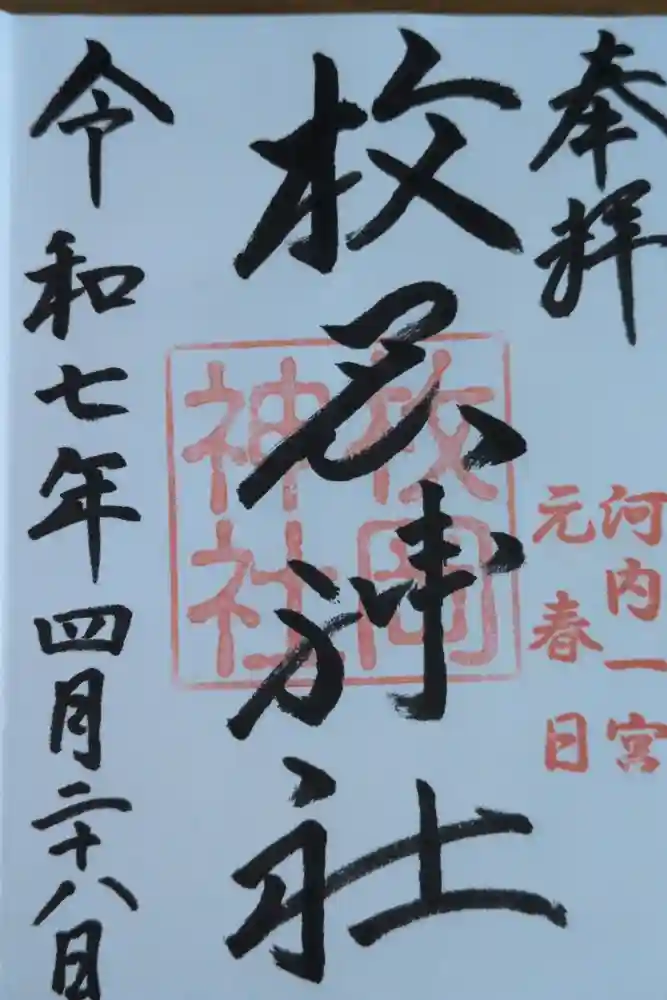 奉拝
河内一宮
元春日
枚岡神社
枚岡
神社
令和七年四月二十八日